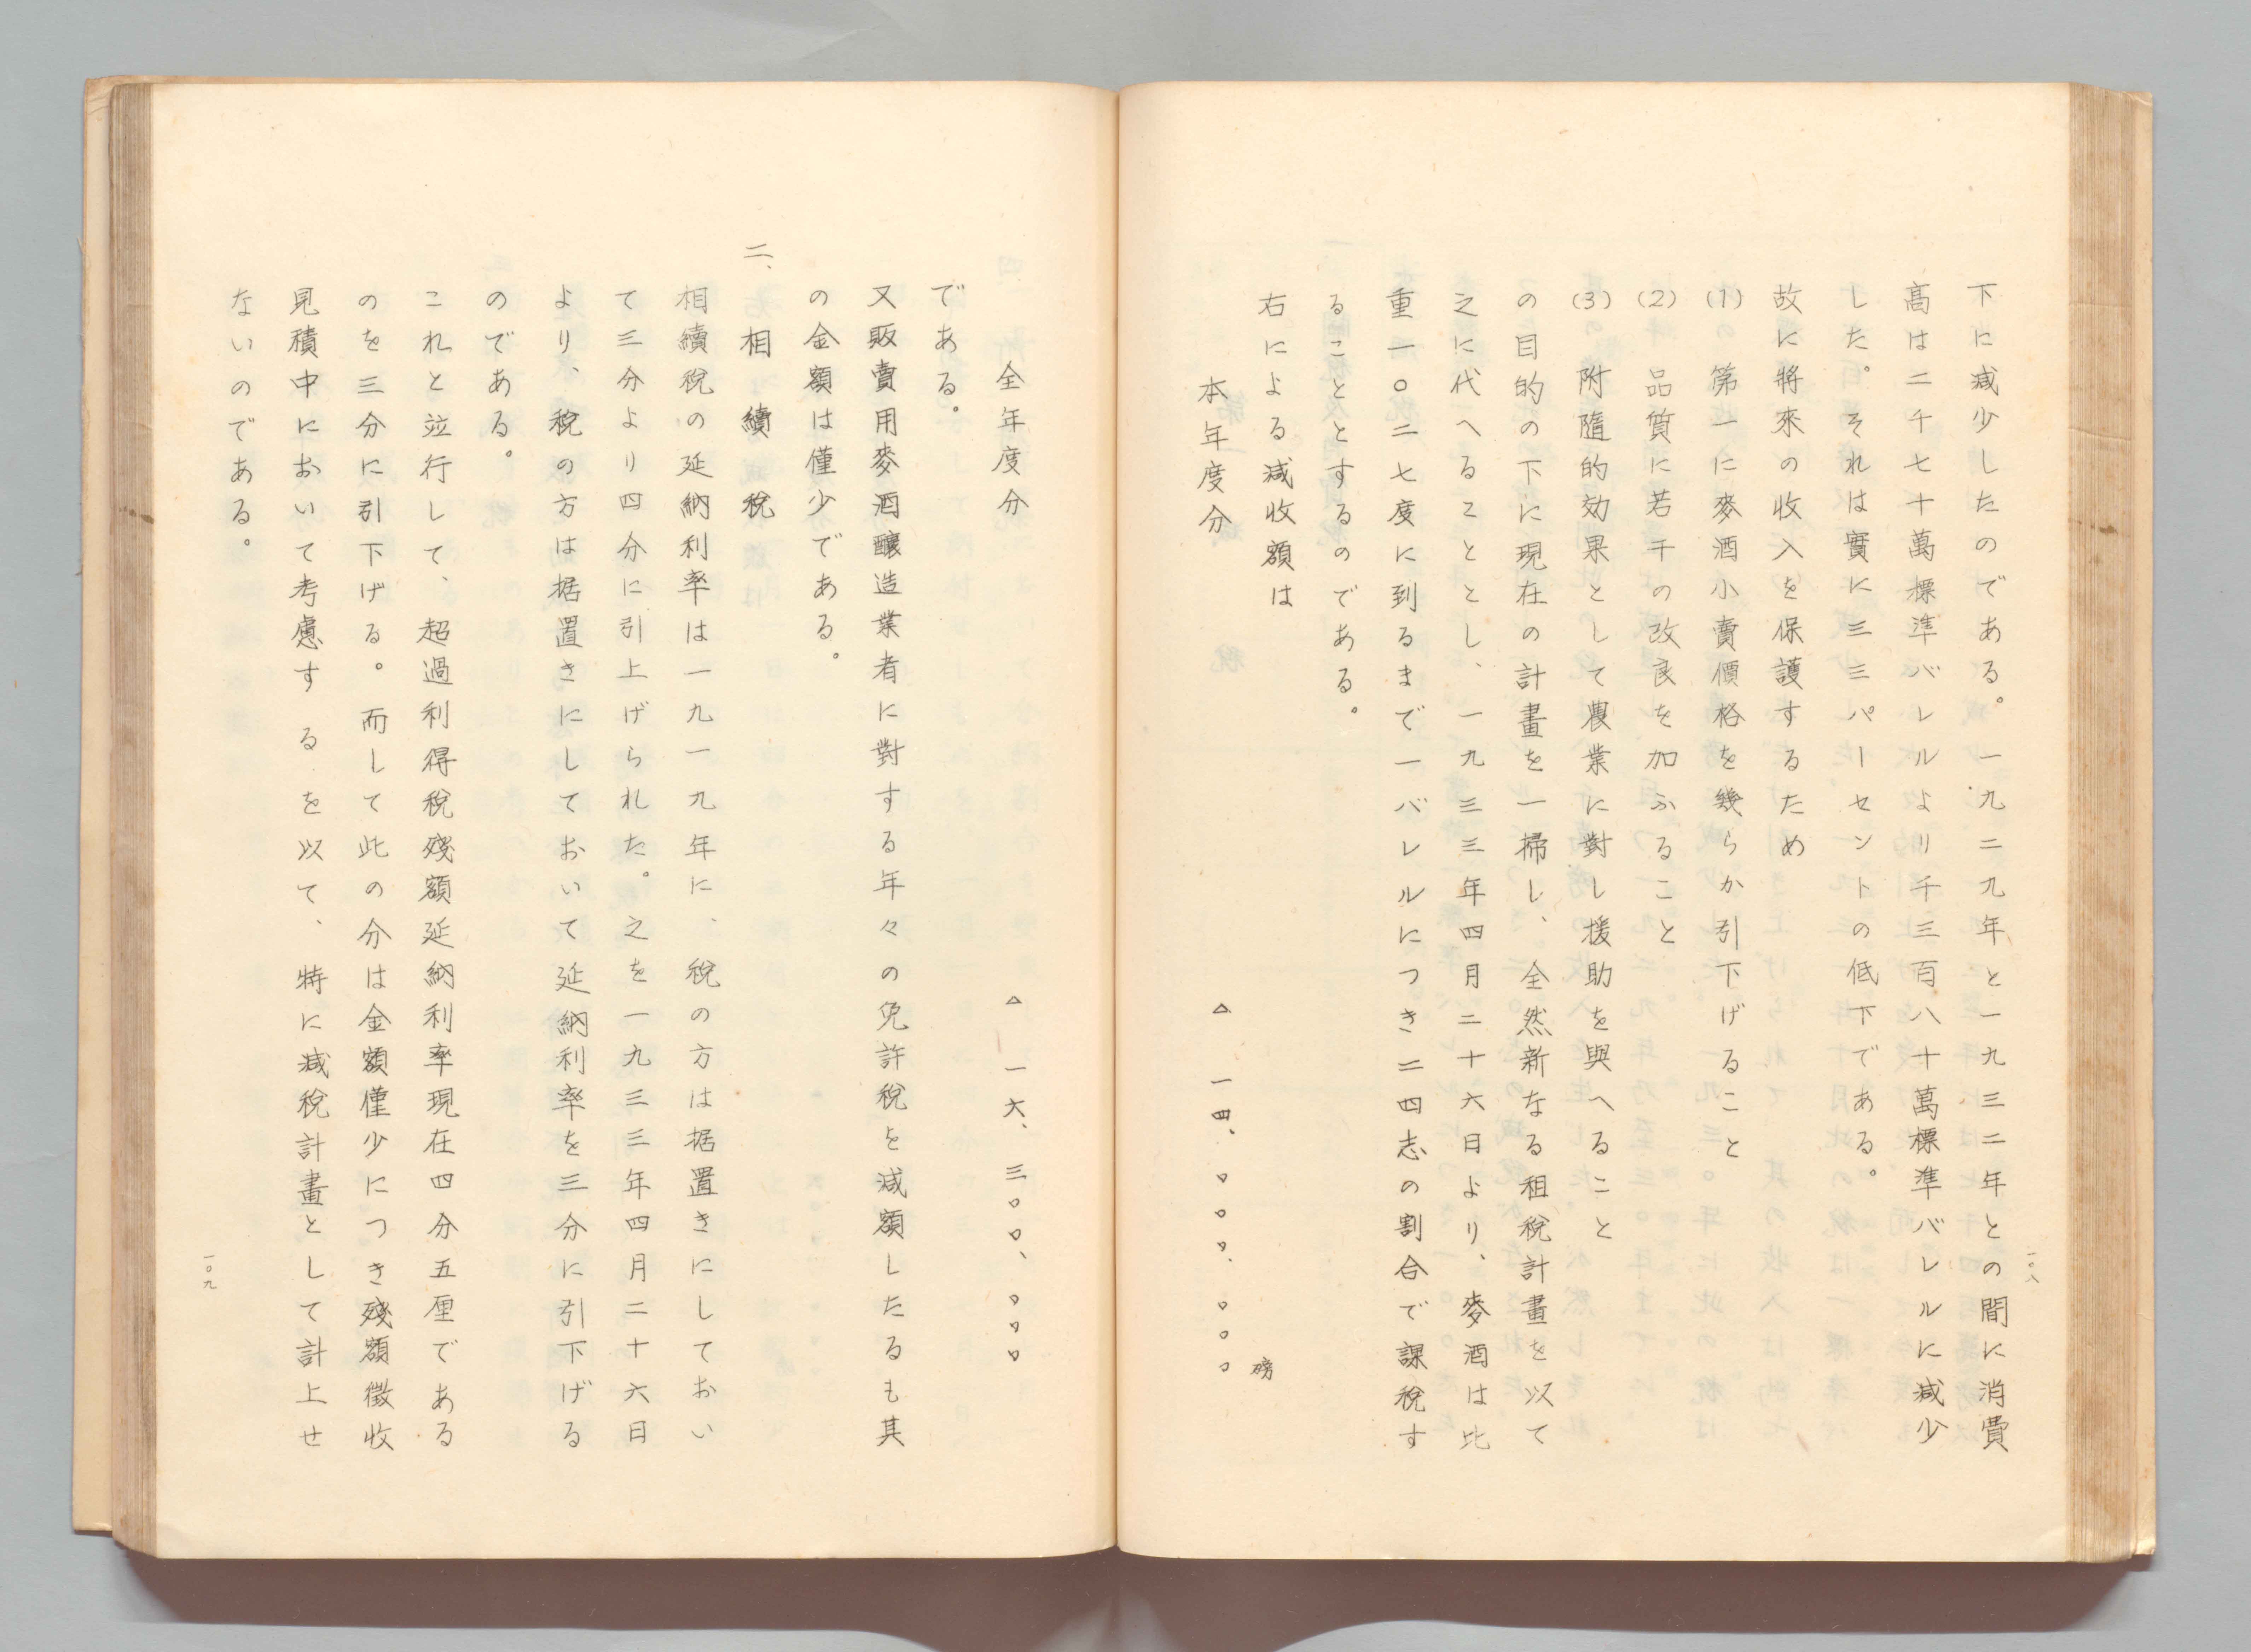 下に減少したのである。一九二九年と一九三二年との間に消費
高は二千七十萬標準バレルより千三百八十萬標準バレルに減少
した。それは實に三三パーセントの低下である。
故に將來の收入を保護するため
(1) 第一に麥酒小賣價格を幾らか引下げること
(2) 品質に若干の改良を加ふること
(3) 附隨的効果として農業に對し援助を與へること
の目的の下に現在の計畫を一掃し、全然新なる租稅計畫を以て
之に代へることとし、一九三三年四月二十六日より、麥酒は比
重一〇二七度に到るまで一バレルにつき二四志の割合で課稅す
ることとするのである。
右による減收額は
磅
本年度分 △ 一四、〇〇〇、〇〇〇
一〇八
全年度分 △ 一六、三〇〇、〇〇〇
である。
又販賣用麥酒釀造業者に對する年々の免許稅を減額したるも其
の金額は僅少である。
二、相續稅
相續稅の延納利率は一九一九年に、稅の方は据置きにしておい
て三分より四分に引上げられた。之を一九三三年四月二十六日
より、稅の方は据置きにしておいて延納利率を三分に引下げる
のである。
これと竝行して、超過利得稅殘額延納利率現在四分五厘である
のを三分に引下げる。而して此の分は金額僅少につき殘額徵收
見積中において考慮するを以て、特に減稅計畫として計上せ
ないのである。
一〇九